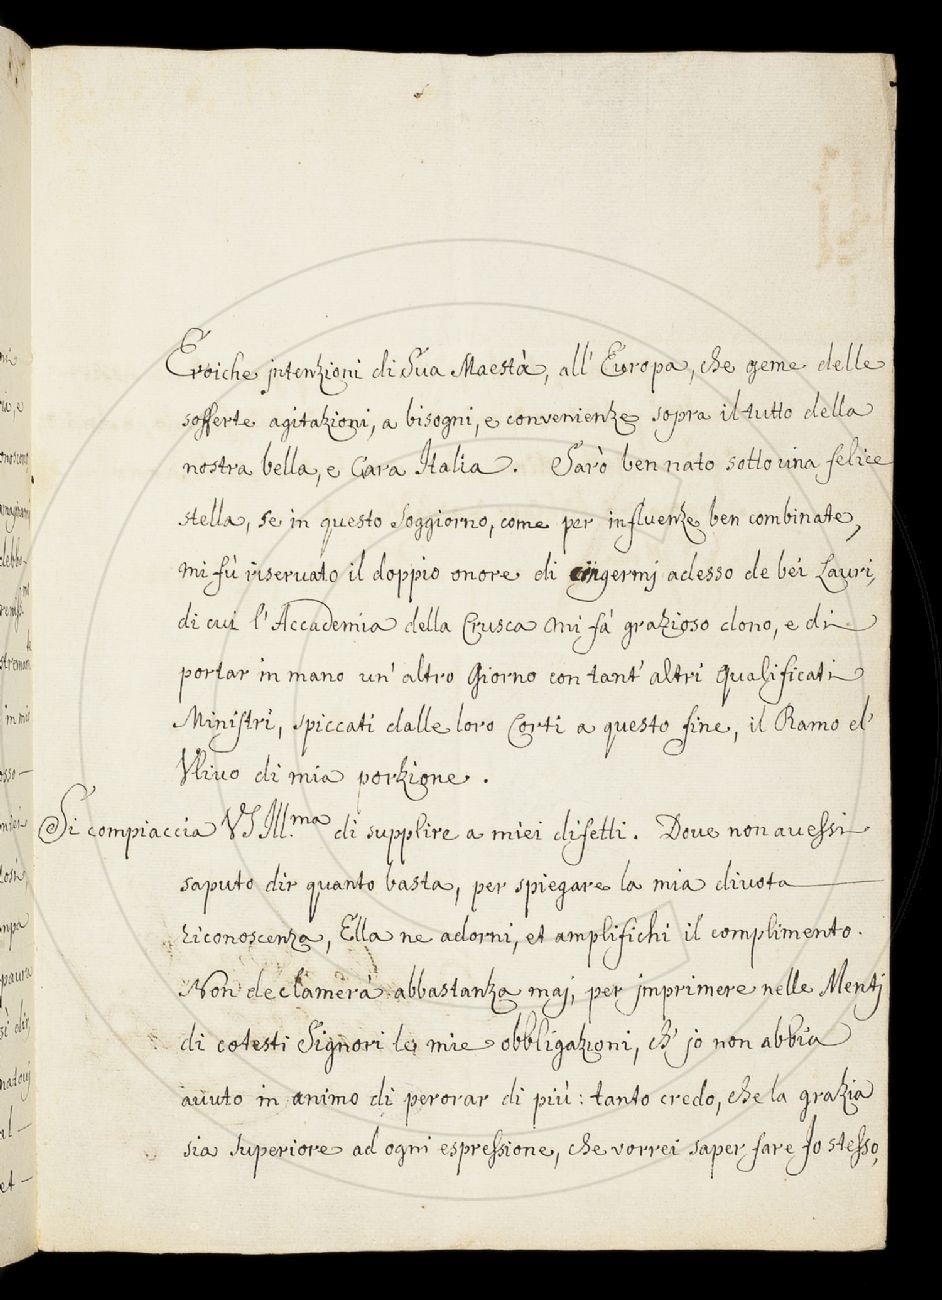 Eroiche jntenzioni di Sua Maestà, all' Europa, che geme delle
sofferte agitazioni, a bisogni, e convenienze sopra il tutto della
nostra bella, e Cara Italia. Sarò ben nato sotto una felice
stella, se in questo Soggiorno, come per influenze ben combinate,
mi fù riservato il doppio onore di cingermj adesso de bei Lauri,
di cui l'Accademia della Crusca mi fà grazioso dono, e di
portar in mano un' altro Giorno con tant' altri Qualificati
Ministri, spiccati dalle loro Corti a questo fine, il Ramo d'
Vlivo di mia porzione.
Si compiaccia VS Ill.ma di supplire a miei difetti. Dove non avessi
saputo dir quanto basta, per spiegare la mia divota
riconoscenza, Ella ne adorni, et amplifichi il complimento.
Non declamerà abbastanza maj, per jmprimere nelle Mentj
di cotesti Signori le mie obbligazioni, ch' jo non abbia
avuto in animo di perorar di più: tanto credo, che la grazia
sia superiore ad ogni espressione, che vorrei saper fare Jo stesso,